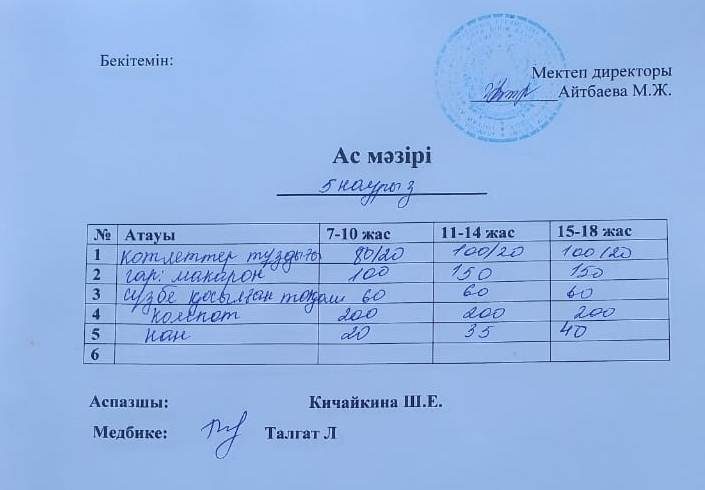 Бекітемін:
Мектеп директоры
Айтбаева М.Ж.
Ас мәзірі
5 наурыз
№ Атауы 7-10 жас 11-14 жас 15-18 жас
1 котлеттер туздығы 80/20 100/20 100/20
2 гар: макарон 100 150 150
3 сүзбе қосылған тоқаш 60 60 60
4 компот 200 200 200
5 нан 20 35 40
6
Аспазшы: Кичайкина Ш.Е.
Медбике: Талгат Л